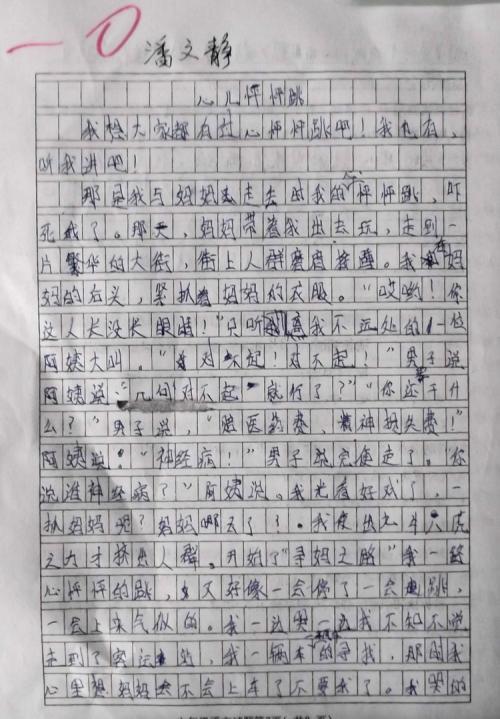 一0
潘文静
心儿怦怦跳
我想大家都有过心怦怦跳吧！我也有，
听我讲吧！
那是我与妈妈走去时我的心怦怦跳，吓
死我了。那天，妈妈带着我出去玩，走到一
片繁华的大街，街上人群磨肩接踵。我在妈
妈的后头，紧抓着妈妈的衣服。“哎哟！你
这人长没长眼睛！”只听离我不远处的一位
阿姨大叫。“对不起！对不起！”男子说
阿姨说：“几句对不起就行了？”“你还要干什
么？”男子说，“赔医药费，精神损失费！”
阿姨说：“神经病！”男子说完便走了。“你
说谁神经病？”阿姨说。我光看好戏了，一
抓妈妈呢？妈妈哪去了？。我使出九牛六虎
之力才挤出人群。开始了“寻妈之路”我一路
心怦怦的跳，又好像一会停了一会跳，
一会上来气似的。我一边哭一边我不知不觉
走到了客运站，我一辆车一辆车的寻找，那时我
心里想妈妈会不会上车了不要我了。我哭的